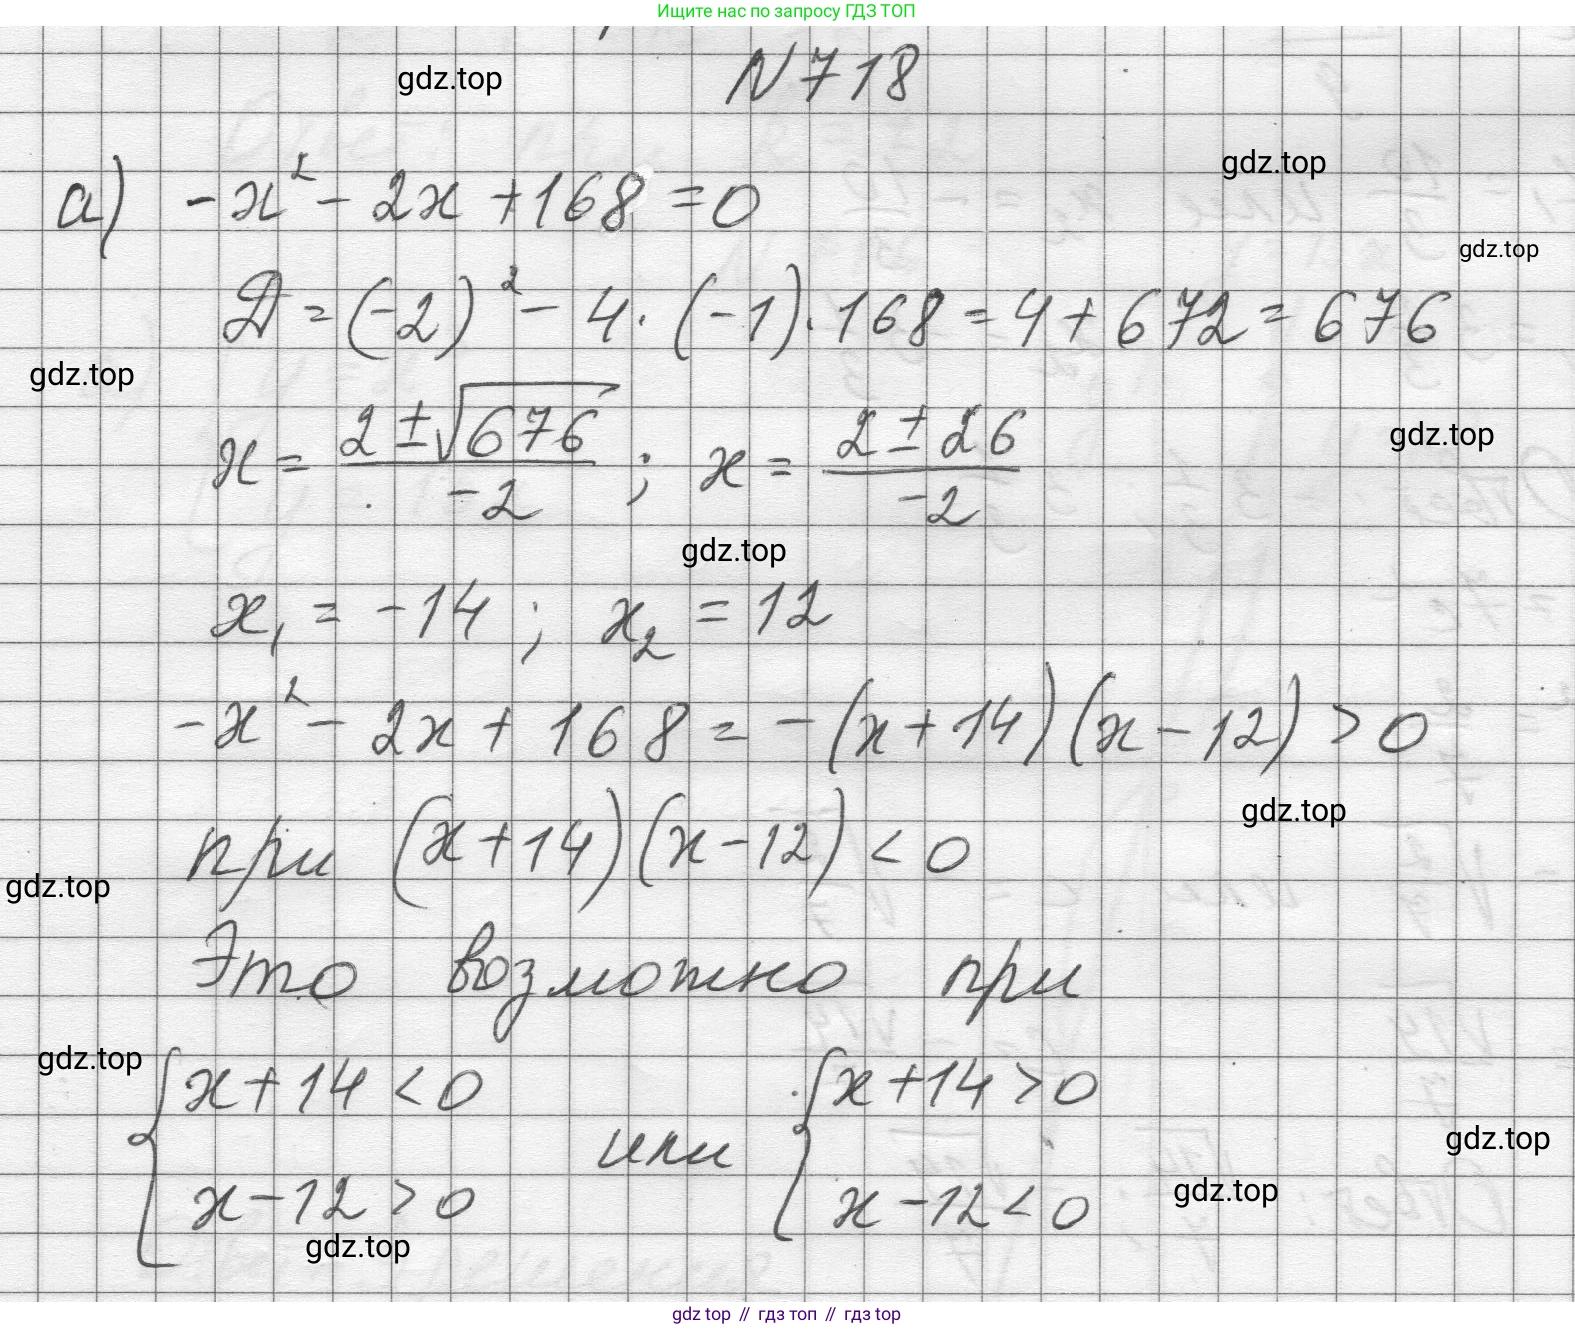 Ищите нас по запросу ГДЗ ТОП
N 718
gdz.top
gdz.top
а) -x² - 2x + 168 = 0
gdz.top
D = (-2)² - 4·(-1)·168 = 4 + 672 = 676
gdz.top
gdz.top
x = (2 ± √676)/(-2) ; x = (2 ± 26)/(-2)
gdz.top
x₁ = -14 ; x₂ = 12
-x² - 2x + 168 = -(x+14)(x-12) > 0
gdz.top
при (x+14)(x-12) < 0
gdz.top
Это возможно при
gdz.top
{ x+14 < 0 или { x+14 > 0
gdz.top
x-12 > 0 x-12 < 0
gdz.top
gdz.top
gdz top // гдз топ // гдз top